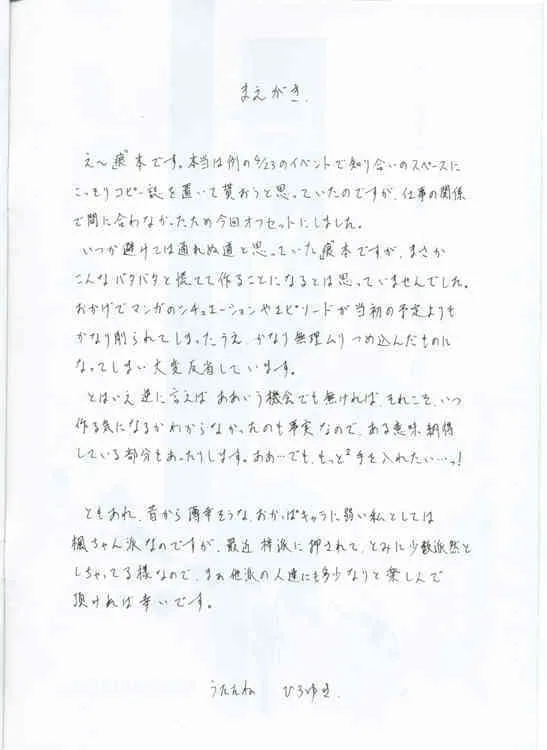 まえがき.
え～痕本です。本当は例の9/23のイベントで知り合いのスペースに
こっそりコピー誌を置いて貰おうと思っていたのですが、仕事の関係
で間に合わなかったため今回オフセットにしました。
いつか避けては通れぬ道と思っていた痕本ですが、まさか
こんなバタバタと慌てて作ることになるとは思っていませんでした。
おかげでマンガのシチュエーションやエピソードが当初の予定よりも
かなり削られてしまったうえ、かなり無理ムリつめ込んだものに
なってしまい大変反省しています。
とはいえ逆に言えばああいう機会でも無ければ、それこそ、いつ
作る気になるかわからなかったのも事実なので、ある意味納得
している部分もあったりします。ああ…でも、もっと²手を入れたい…っ!
ともあれ、昔から薄幸そうな、おかっぱキャラに弱い私としては
楓ちゃん派なのですが、最近梓派に押されて、とみに少数派然と
しちゃってる様なので、まぁ他派の人達にも多少なりと楽しんで
頂ければ幸いです。
うたたね ひろゆき.